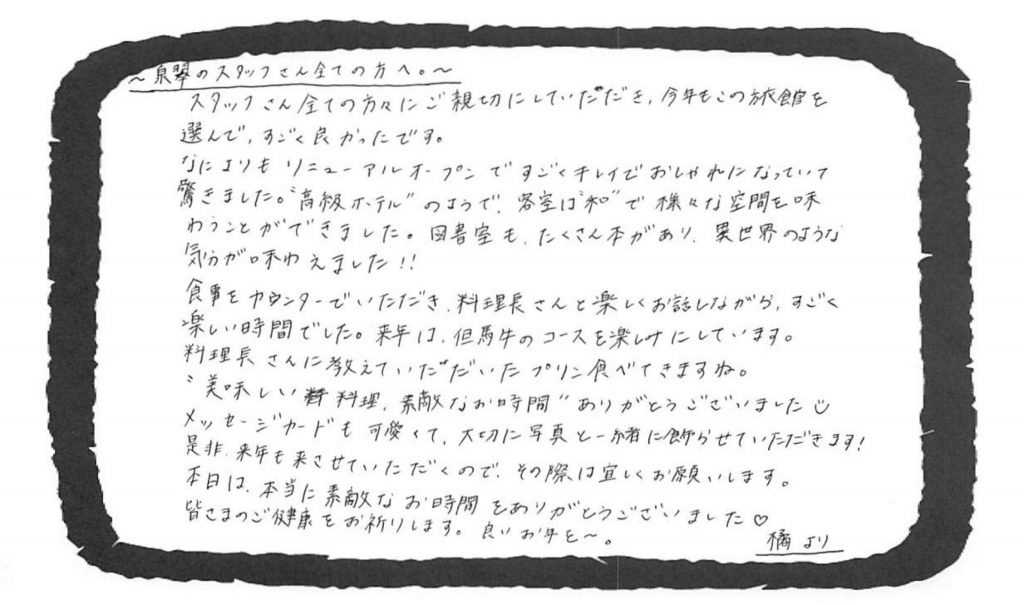 ～泉翠のスタッフさん全ての方へ。～
スタッフさん全ての方々にご親切にしていただき、今年もこの旅館を
選んで、すごく良かったです。
なによりもリニューアルオープンですごくキレイでおしゃれになっていて
驚きました。"高級ホテル"のようで、客室は"和"で様々な空間を味
わうことができました。図書室も、たくさん本があり、異世界のような
気分が味わえました!!
食事をカウンターでいただき、料理長さんと楽しくお話しながら、すごく
楽しい時間でした。来年は、但馬牛のコースを楽しみにしています。
料理長さんに教えていただいたプリン食べてきますね。
"美味しい料理、素敵なお時間"ありがとうございました☺
メッセージカードも可愛くて、大切に写真と一緒に飾らせていただきます!
是非、来年も来させていただくので、その際は宜しくお願いします。
本日は、本当に素敵なお時間をありがとうございました♡
皆さまのご健康をお祈りします。良いお年を～。
橘より